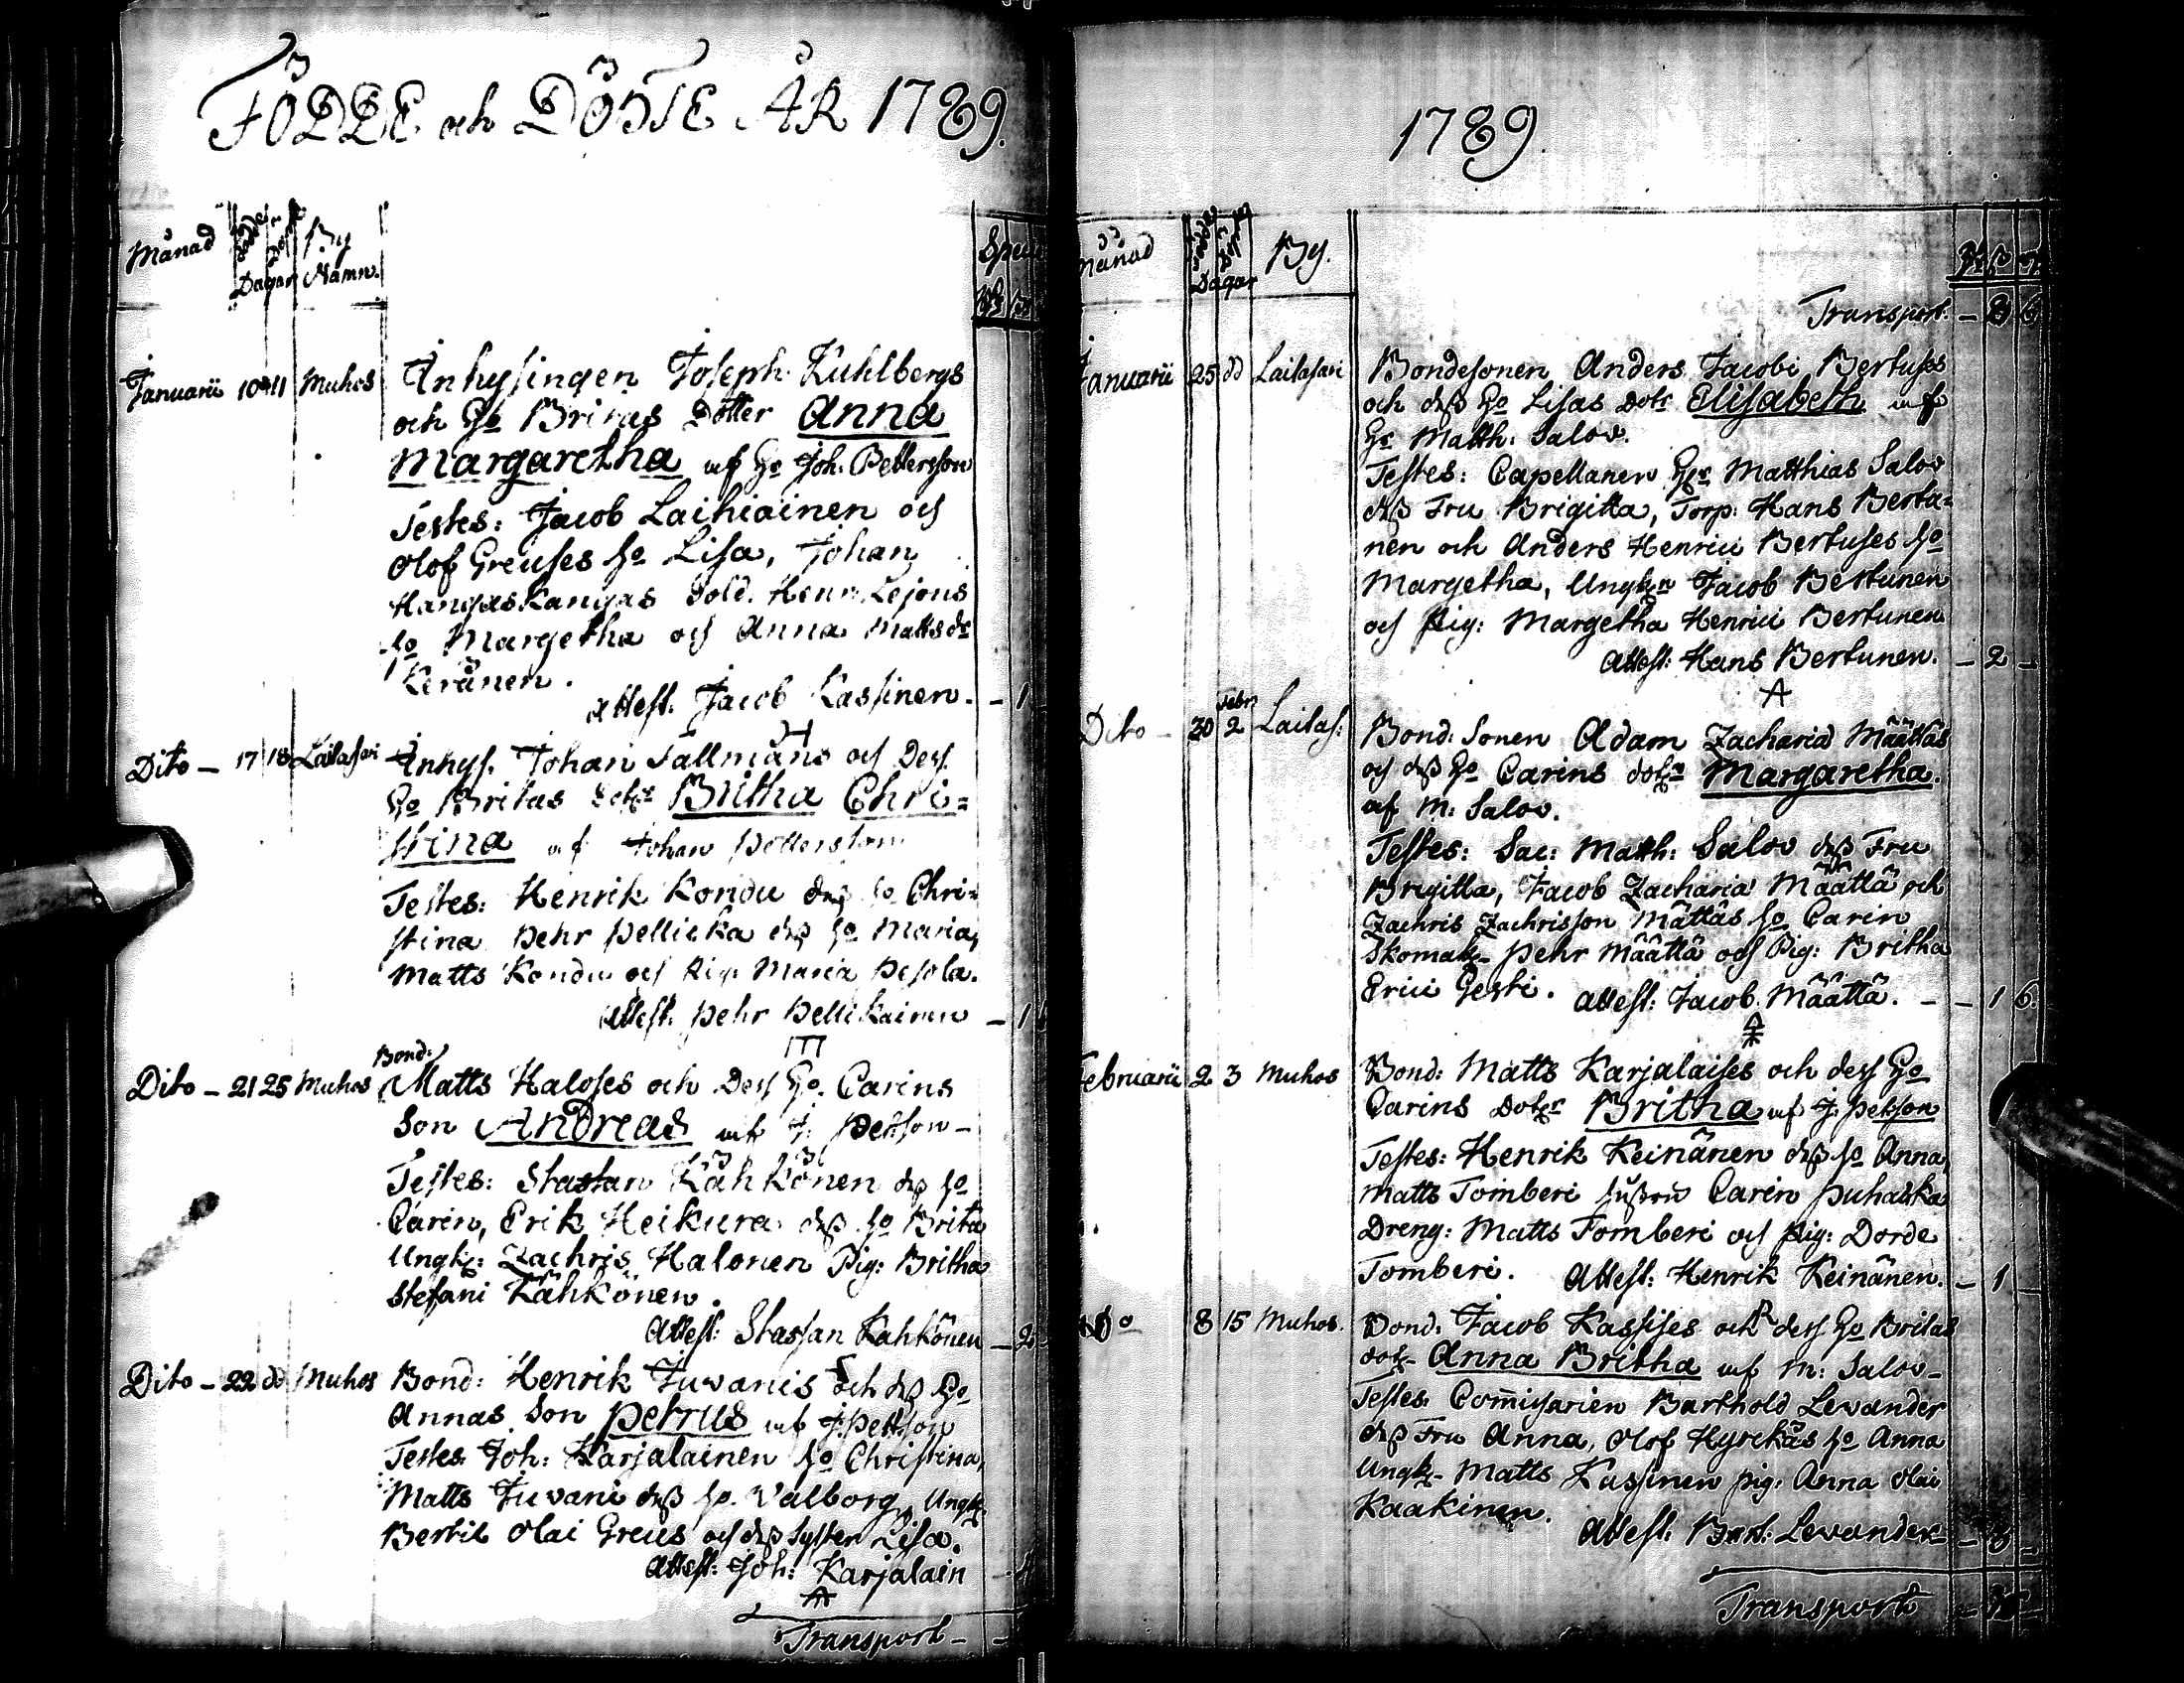 FÖDDE och DÖPTE ÅR 1789.
Månad
Dagar
By Namn.
Januarii 10 11 Muhos Inhysingen Joseph Kuhlbergs
och Ho Britas Dotter Anna
Margaretha af Hr Joh. Pettersson
Testes: Jacob Laihiainen och
Olof Greuses ho Lisa, Johan
Hangaskangas Sold. Henr. Lejons
ho Margetha och Anna Mattsdr
Keränen.
Attest. Jacob Kassinen. – 1
Dito – 17 18 Laitasari Inhys. Johan Tallmans och Dess
Ho Britas Dotr Britha Chri=
stina af Johan Pettersson
Testes: Henrik Kondu dess ho Chri=
stina Pehr Pellicka dess ho Maria,
Matts Kondu och Pig. Maria Pesola.
Attest. Pehr Pellikainen – 1
Dito – 21 25 Muhos Bond: Matts Haloses och Dess Ho. Carins
Son Andreas af J. Pettson –
Testes: Staffan Kähkönen dess ho
Carin, Erik Heikura dess ho Brita
Ungk: Zachris Halonen Pig: Britha
Stefani Kähkönen.
Attest: Staffan Kahkönen – 2
Dito – 22 dd Muhos Bond: Henrik Juvanis och dess Ho
Annas Son Petrus af J. Pettson
Testes. Joh: Karjalainen ho Christina,
Matts Juvani dess ho. Valborg, Ungk.
Bertil Olai Greus och dess Syster Lisa.
Attest: Joh: Karjalain
Transport –
1789.
Månad
Dagar
By.
Transport. – 8 6
Januarii 25 dd Laitasari Bondesonen Anders Jacobi Bertuses
och dess Ho Lisas Dotr Elisabeth af
Hr Matth: Salov.
Testes: Capellanen Hr Matthias Salov
dess Fru Brigitta, Torp: Hans Bertu=
nen och Anders Henrici Bertuses ho
Margetha, Ungkn Jacob Bertunen
och Pig: Margetha Henrici Bertunen
Attest: Hans Bertunen. – 2 –
Dito – 30 Febr 2 Laitas: Bond: Sonen Adam Zachariæ Määttäs
och dess Ho Carins dotr Margaretha.
af M: Salov.
Testes: Sac: Matth: Salov dess Fru
Brigitta, Jacob Zachariæ Määttä och
Zachris Zachrisson Mättäs ho Carin
Skomak– Pehr Määttä och Pig: Britha
Erici Gesti. Attest: Jacob Määttä. – – 1 6.
Februarii 2 3 Muhos Bond: Matts Karjalaises och dess Ho
Carins Dotr Britha af J. Pettson
Testes: Henrik Keinänen dess ho Anna,
Matts Tomberi hustru Carin Puhakka
Dreng: Matts Tomberi och Pig: Dorde
Tomberi. Attest: Henrik Keinänen. – 1
Do 8 15 Muhos. Bond. Jacob Kassises och dess Ho Britas
dotr– Anna Britha af M: Salov –
Testes: Commissarien Barthold Levander
dess Fru Anna, Olof Hyrckäs ho Anna
Ungk– Matts Kassinen Pig: Anna Olai
Kaakinen. Attest. Bart: Levander
Transport